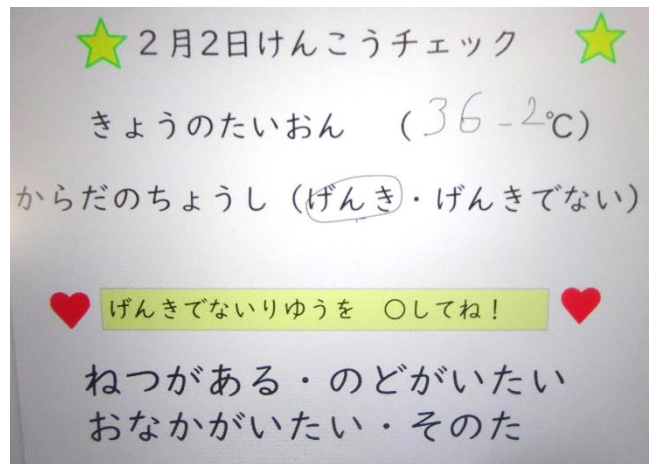 2月2日けんこうチェック
きょうのたいおん (36-2℃)
からだのちょうし(げんき・げんきでない)
げんきでないりゆうを 〇してね!
ねつがある・のどがいたい
おなかがいたい・そのた